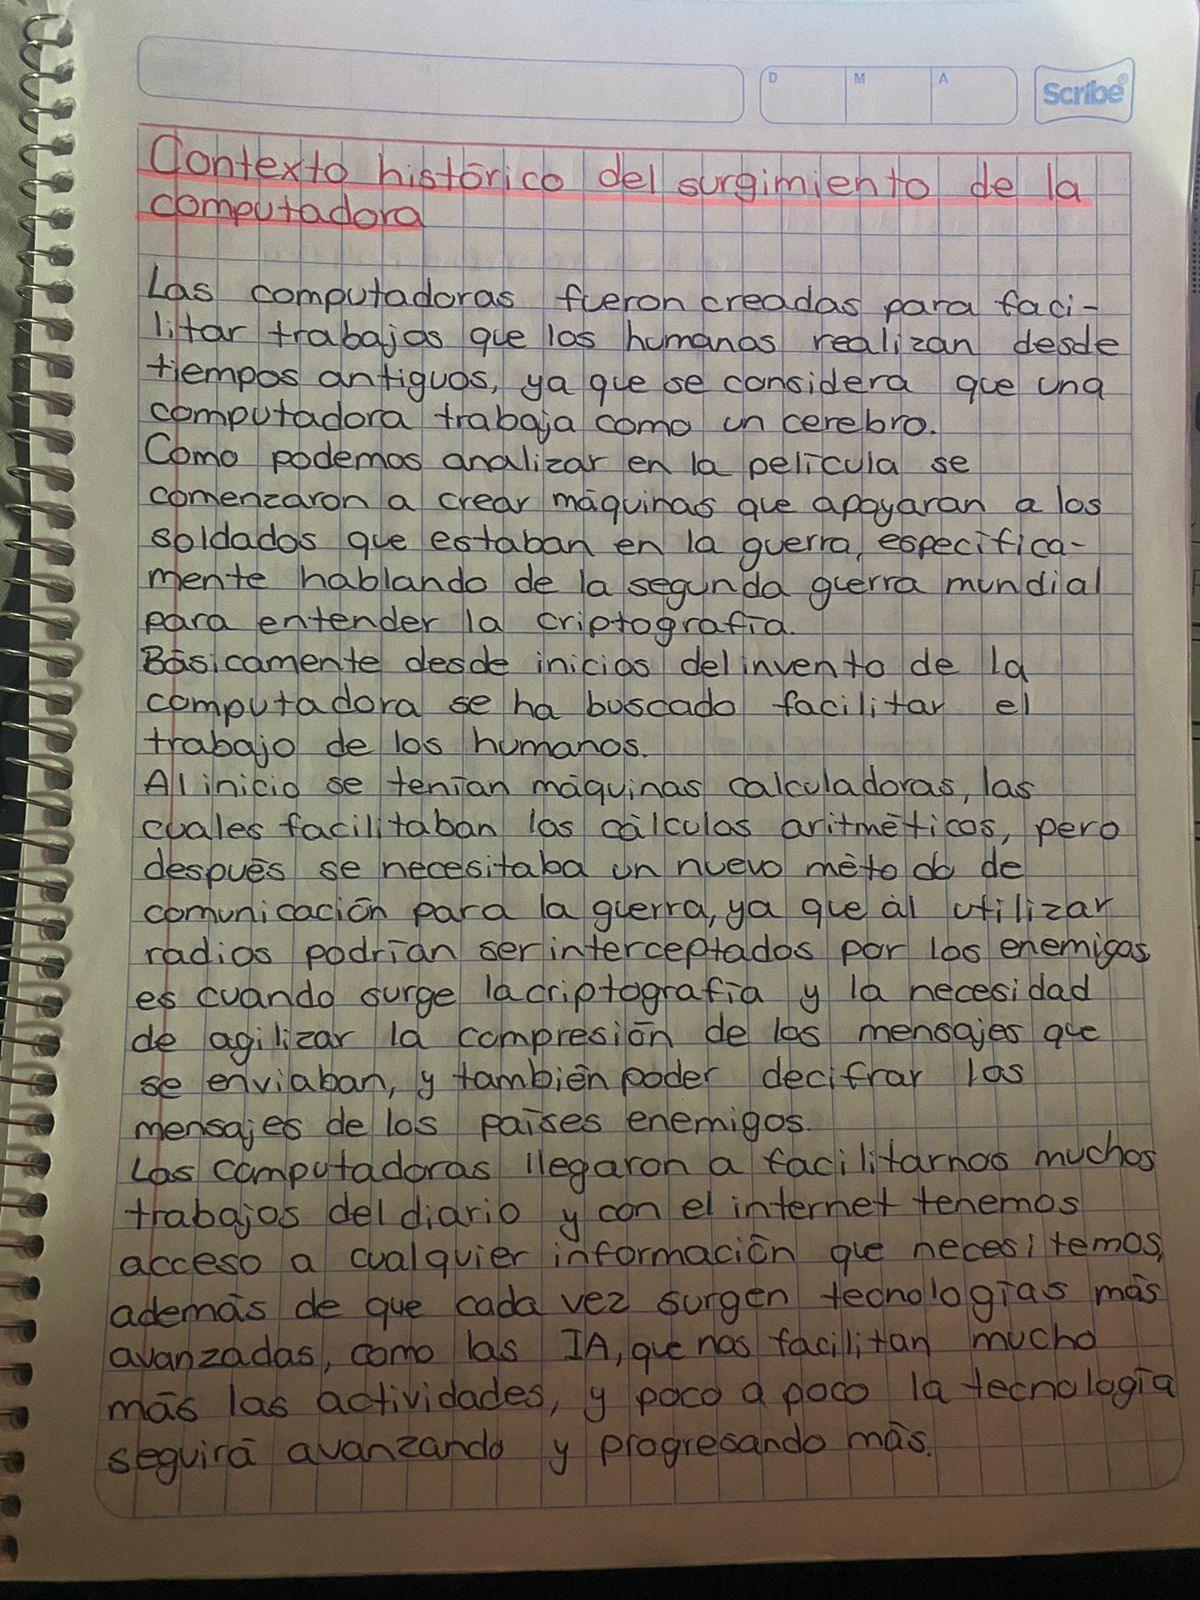 D M A Scribe®
Contexto histórico del surgimiento de la
computadora
Las computadoras fueron creadas para faci-
litar trabajos que los humanos realizan desde
tiempos antiguos, ya que se considera que una
computadora trabaja como un cerebro.
Como podemos analizar en la película se
comenzaron a crear máquinas que apoyaran a los
soldados que estaban en la guerra, específica-
mente hablando de la segunda guerra mundial
para entender la criptografía.
Básicamente desde inicios del invento de la
computadora se ha buscado facilitar el
trabajo de los humanos.
Al inicio se tenían máquinas calculadoras, las
cuales facilitaban los cálculos aritméticos, pero
después se necesitaba un nuevo método de
comunicación para la guerra, ya que al utilizar
radios podrían ser interceptados por los enemigos,
es cuando surge la criptografía y la necesidad
de agilizar la compresión de los mensajes que
se enviaban, y también poder decifrar los
mensajes de los países enemigos.
Las computadoras llegaron a facilitarnos muchos
trabajos del diario y con el internet tenemos
acceso a cualquier información que necesitemos,
además de que cada vez surgen tecnologías más
avanzadas, como las IA, que nos facilitan mucho
más las actividades, y poco a poco la tecnología
seguirá avanzando y progresando más.